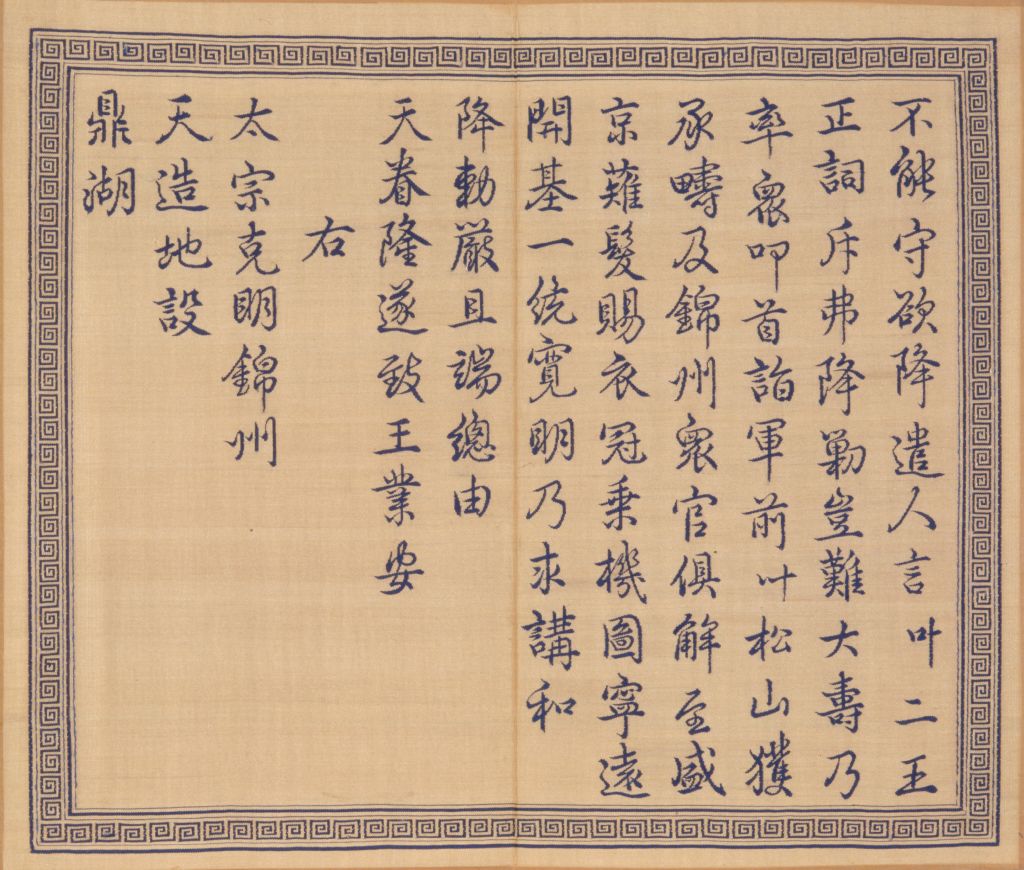 不能守欲降遣人言叶二王
正詞斥弗降勦豈難大壽乃
率眾叩首詣軍前叶松山獲
承疇及錦州眾官俱解至盛
京薙髮賜衣冠乘機圖寧遠
開基一統寬明乃求講和
降勅嚴且端總由
天眷隆遂致王業安
右
太宗克明錦州
天造地設
鼎湖